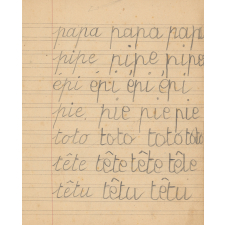 papa papa papa
pipe pipe pipe
épi épi épi épi
pie, pie pie pie
toto toto toto toto
tête tête tête tête
têtu têtu têtu